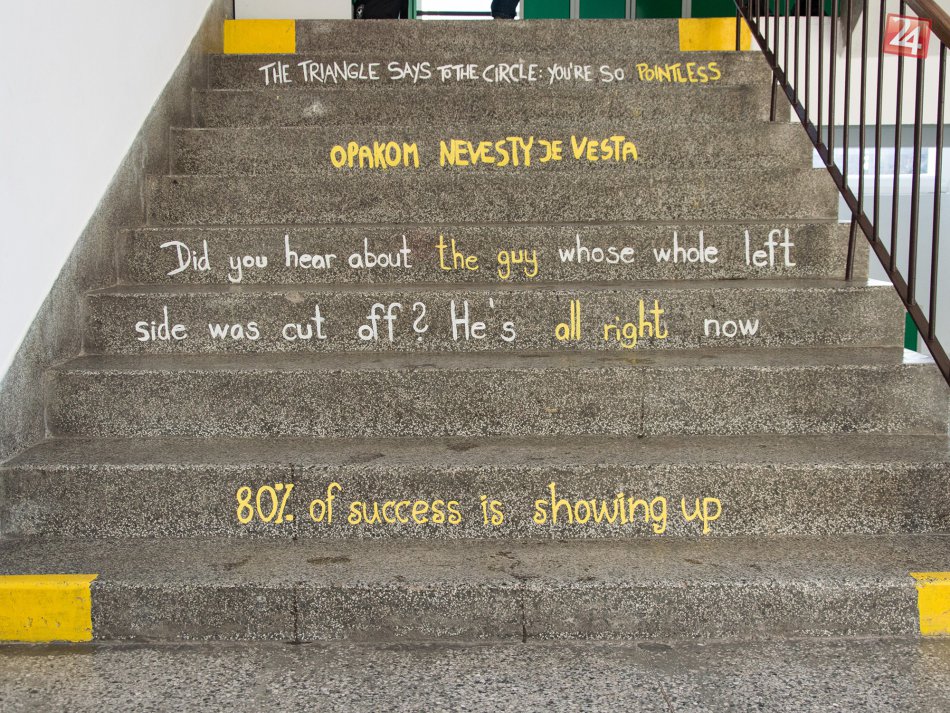 24
THE TRIANGLE SAYS TO THE CIRCLE: YOU'RE SO POINTLESS
OPAKOM NEVESTY JE VESTA
Did you hear about the guy whose whole left
side was cut off? He's all right now
80% of success is showing up